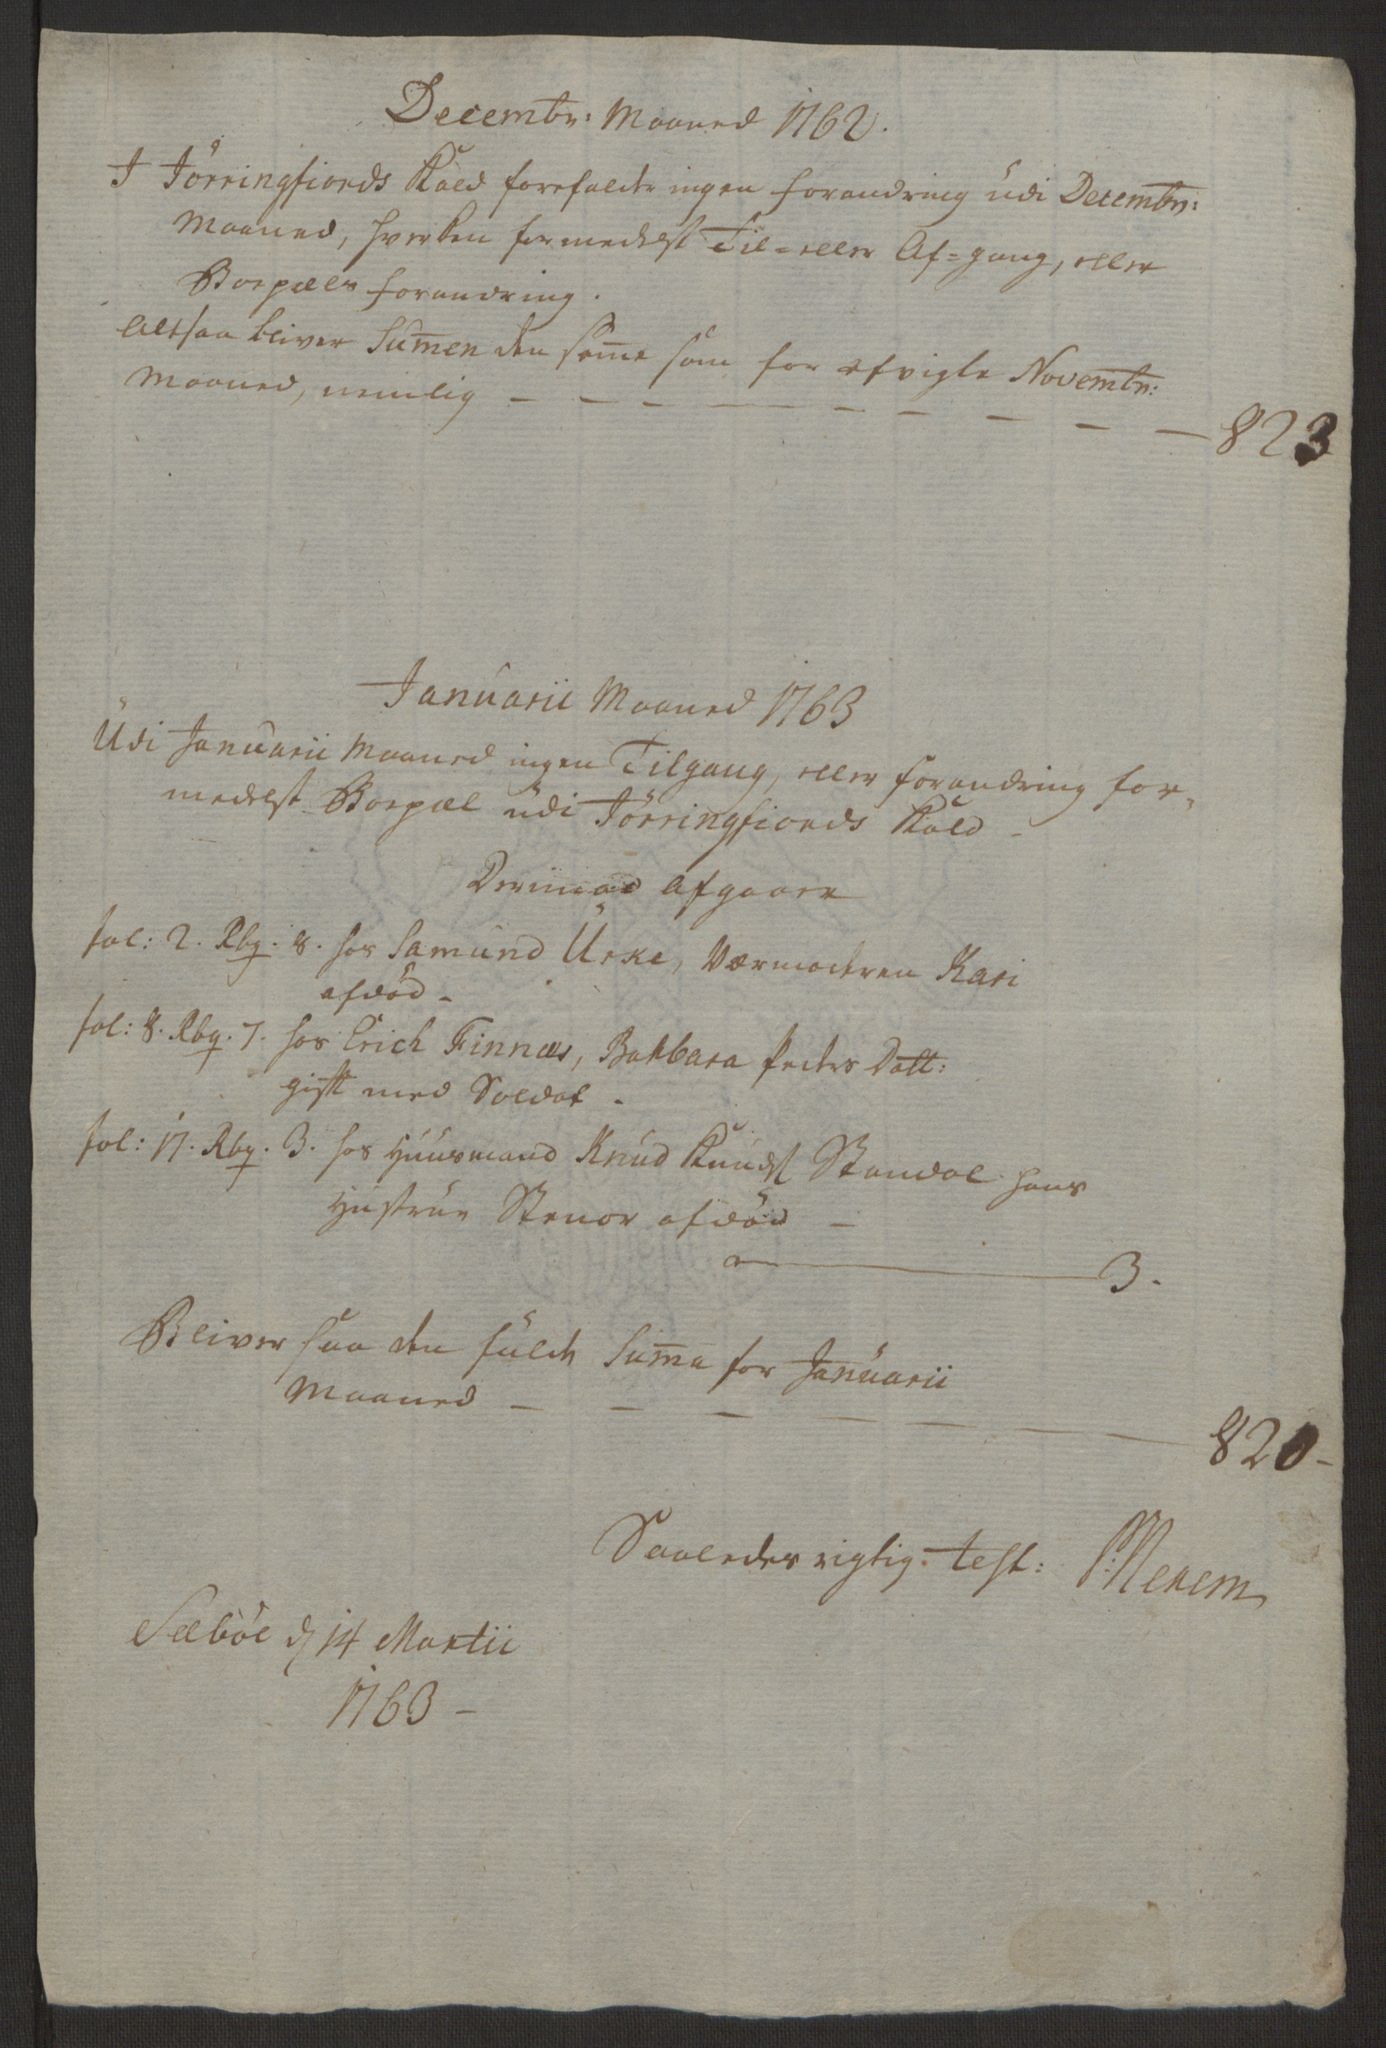 Decembr: Maaned 1762.
I Jörringfiords Kald forefaldt ingen forandring udi Decembr:
Maaned, hverken formedelst Til- eller Af=gang, eller
Boepæls forandring.
Altsaa bliver Sum̅en den sam̅e som for afvigte Novembr:
Maaned, nemlig — — — — — — — — — 823
Januarii Maaned 1763
Udi Januarii Maaned ingen Tilgang, eller forandring for-
medelst Boepæl udi Jörringfiords Kald -
Derimod Afgaaer
fol: 2. Rbg. 8. hos Samund Urke, Værmoderen Kari
afdöd -
fol: 8. Rbg. 7. hos Erich Finnæs, Barbara Peders Datt:
gift med Soldat -
fol: 17. Rbg. 3. hos Huusmand Knud Knuds. Standal hans
Hustrue Steнor afdöd —
3.
Bliver saa den fulde Sum̅a for Januarii
Maaned — — — — — — 820-
Saaledes rigtig. test:
Sæböe d 14 Martii
1763 -